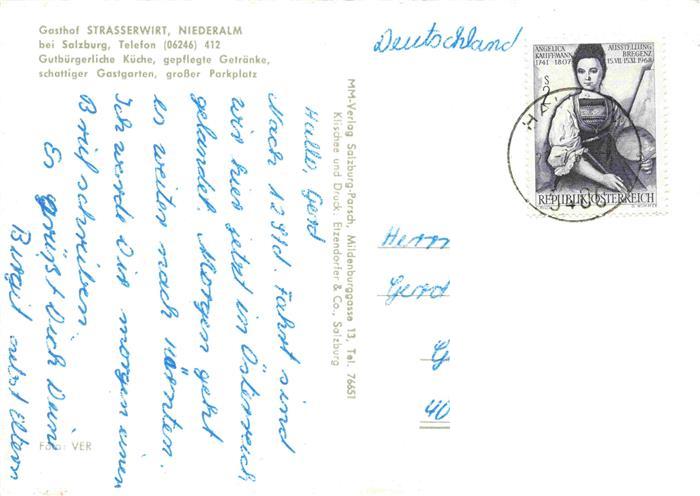 Gasthof STRASSERWIRT, NIEDERALM
bei Salzburg, Telefon (06246) 412
Gutbürgerliche Küche, gepflegte Getränke,
schattiger Gastgarten, großer Parkplatz
Hallo, Gerd
Nach 12 Std. Fahrt sind
wir hier jetzt in Österreich
gelandet. Morgen geht
es weiter nach Kärnten.
Ich werde Dir morgen einen
Brief schreiben
Es grüßt Dich Deine
Birgit nebst Eltern
Foto: VER
MM-Verlag Salzburg-Parsch, Mildenburggasse 13, Tel. 76651
Klischee und Druck: Etzendorfer & Co., Salzburg
Deutschland
ANGELICA KAUFFMANN 1741 1807
AUSSTELLUNG BREGENZ 15.VII.-15.XI.1968
S 2
REPUBLIK ÖSTERREICH
HA
5400
Herrn
Gerd
G
40